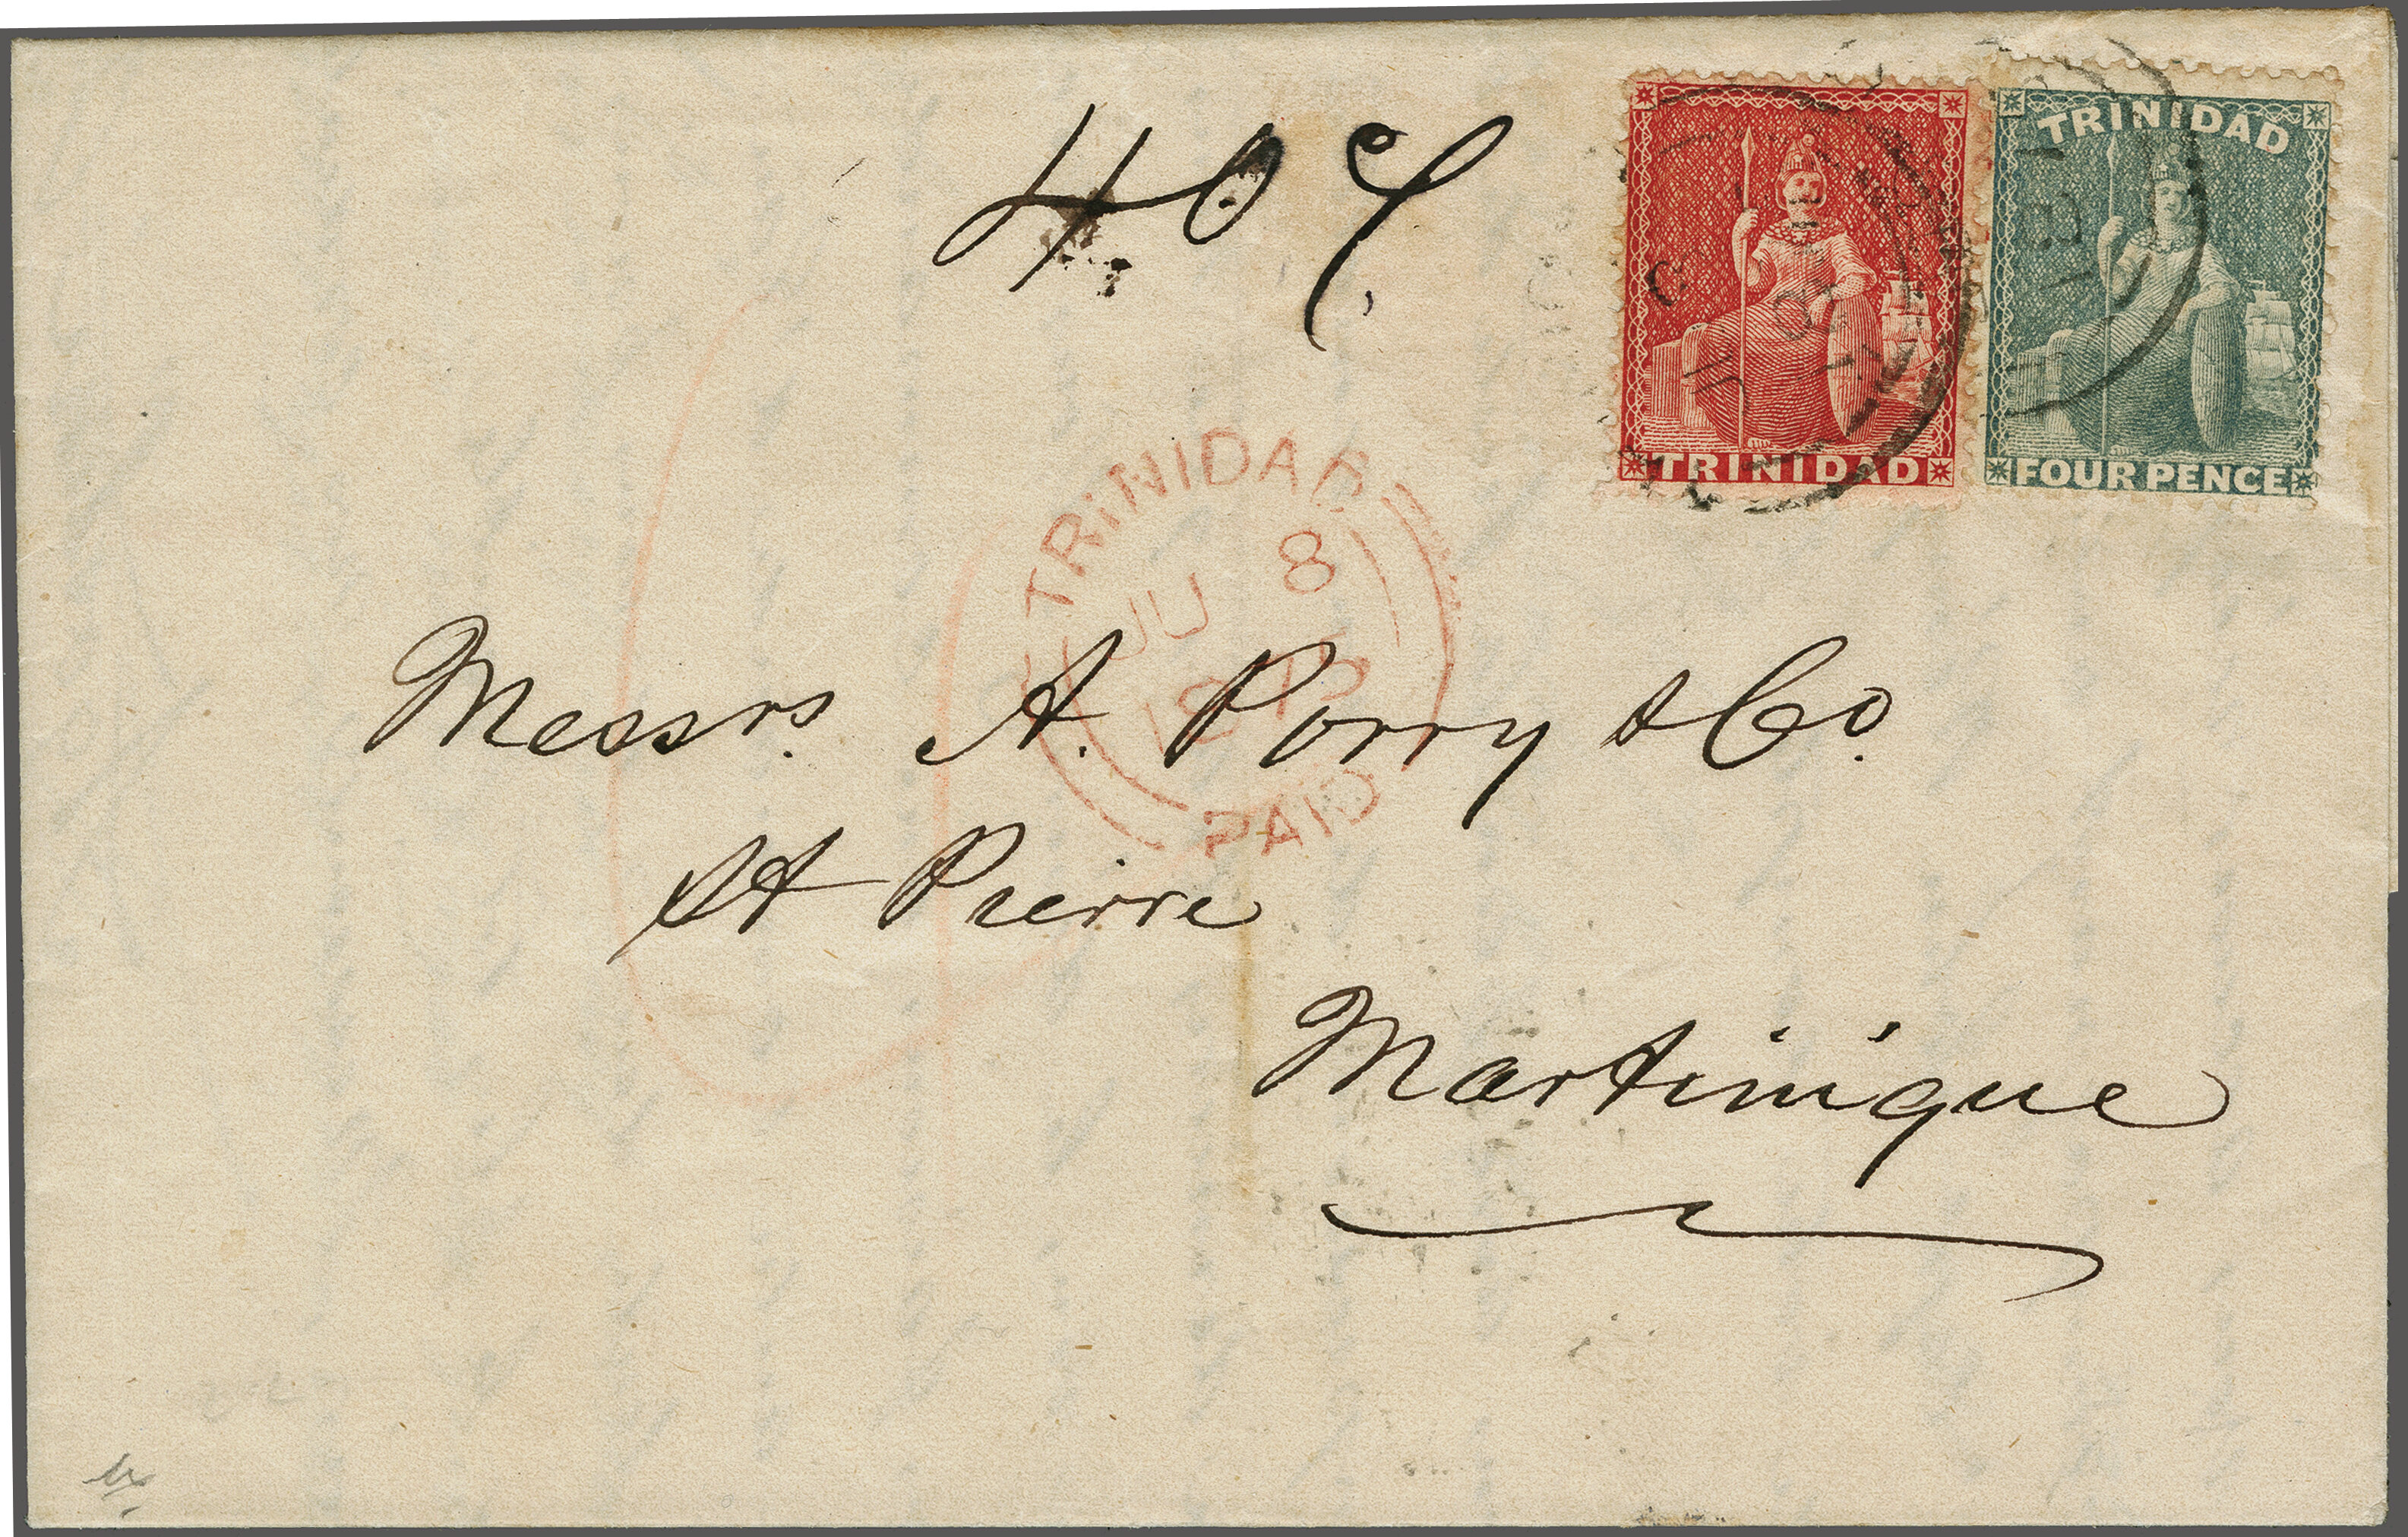 40 C.
TRINIDAD
TRINIDAD
FOUR PENCE
TRINIDAD
JU 8
PAID
Messrs. A. Porry & Co.
St Pierre
Martinique